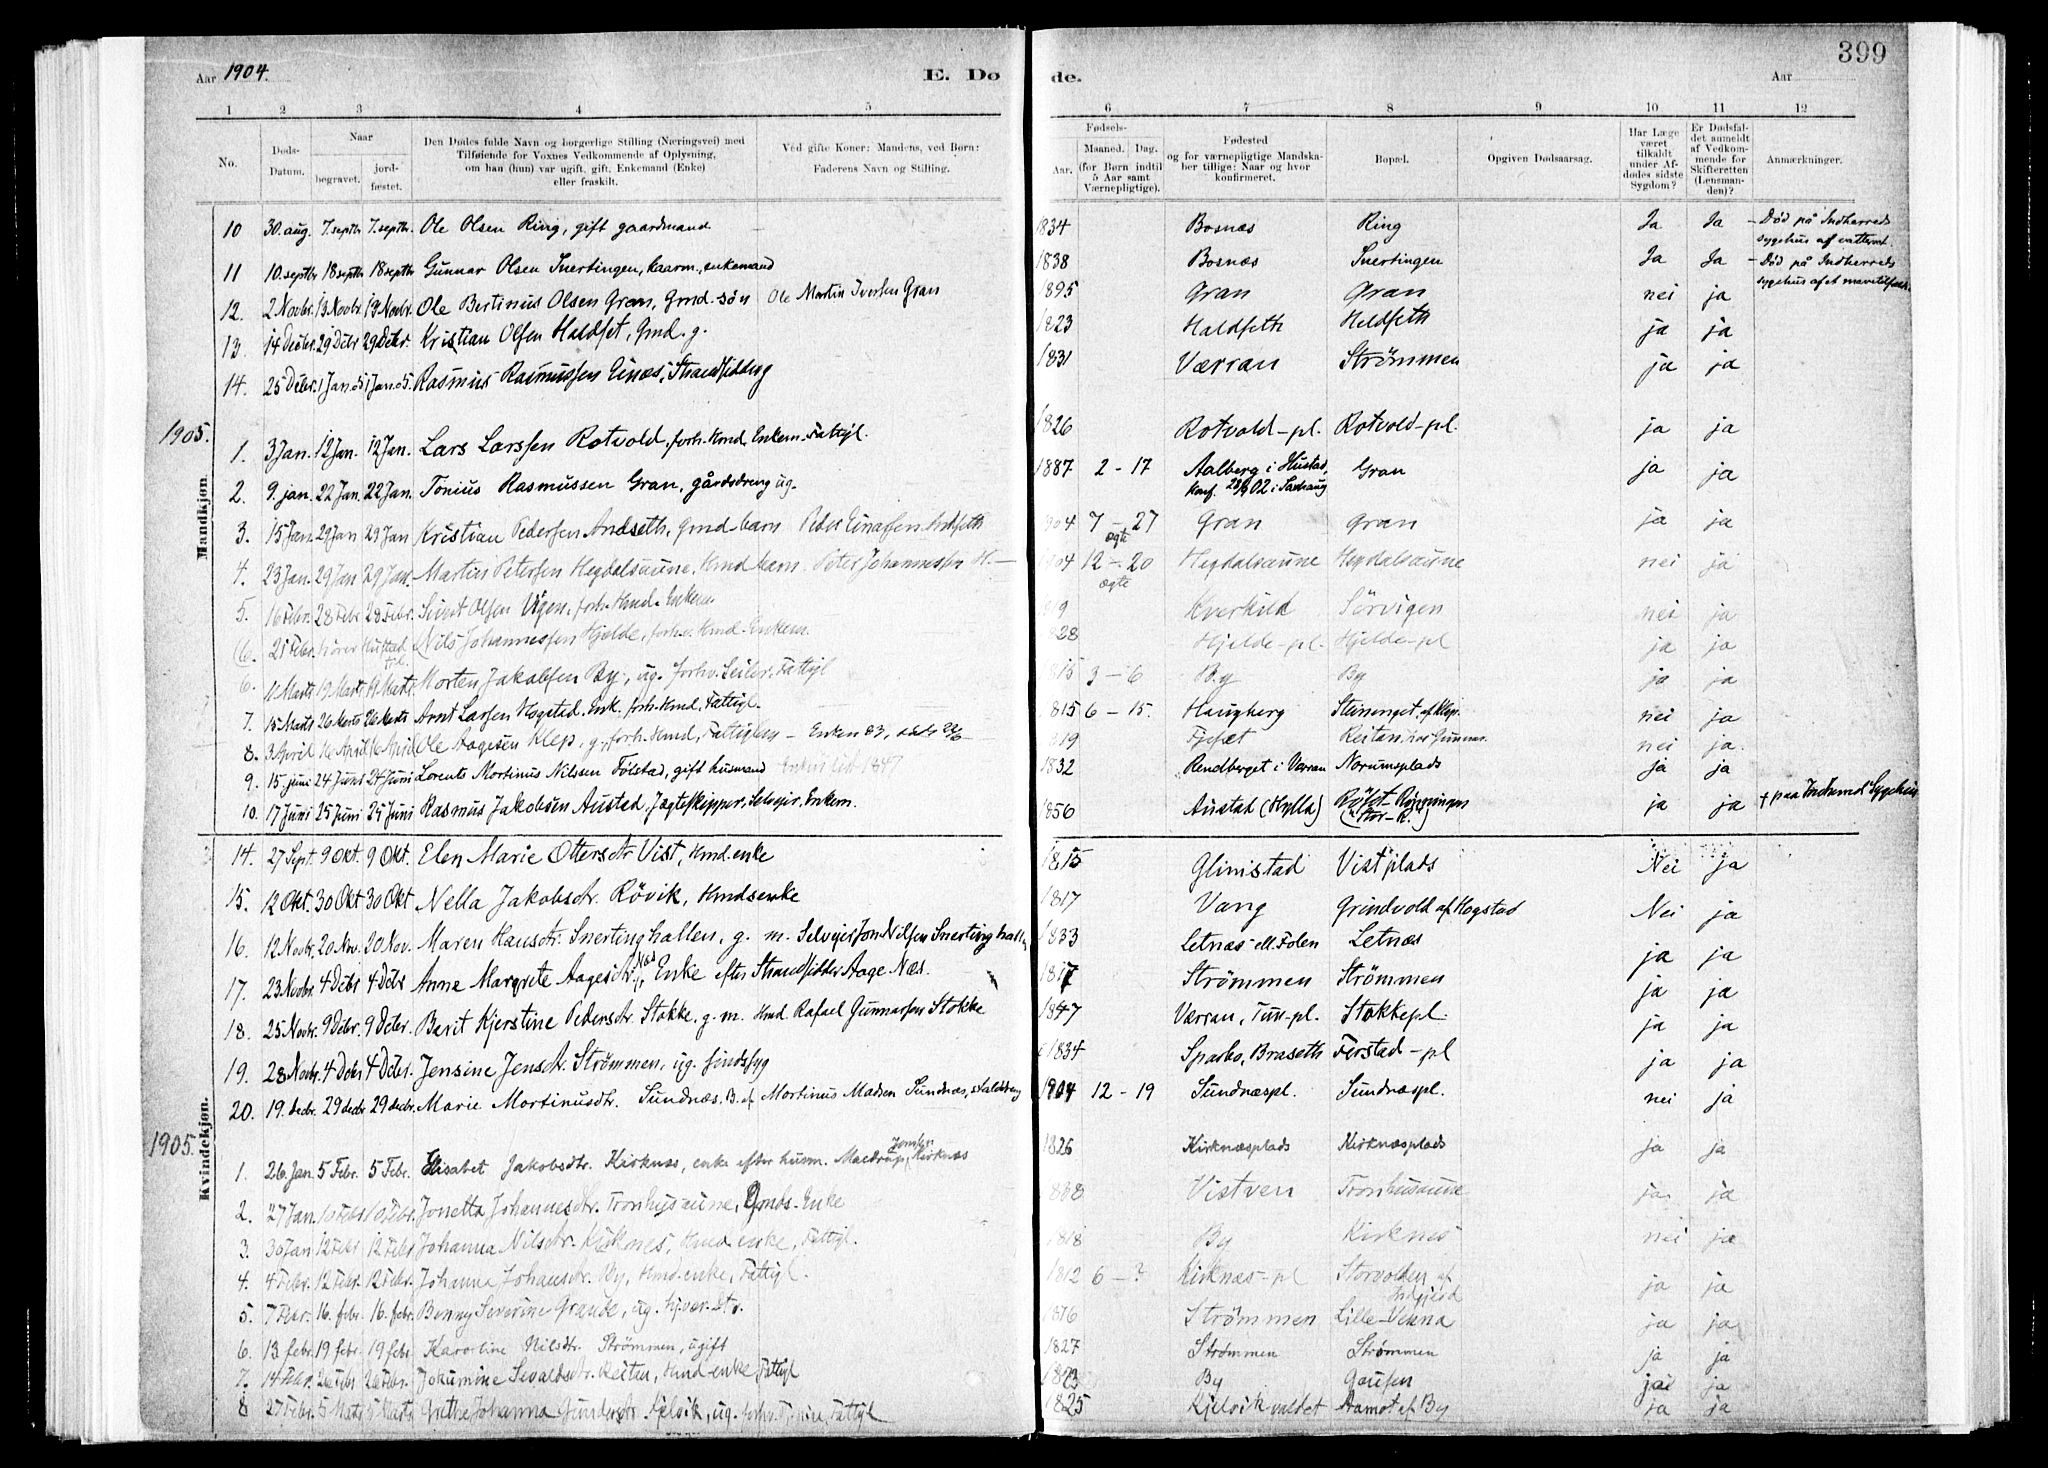 399
Aar 1904. E. Dø de. Aar
1 2 3 4 5 6 7 8 9 10 11 12
No. Døds-Datum. Naar begravet. jord-fæstet. Den Dødes fulde Navn og borgerlige Stilling (Næringsvei) med Tilføiende for Voxnes Vedkommende af Oplysning, om han (hun) var ugift, gift, Enkemand (Enke) eller fraskilt. Ved gifte Koner: Mandens, ved Børn: Faderens Navn og Stilling. Fødsels- Aar. Maaned. Dag. (for Børn indtil 5 Aar samt Værnepligtige). Fødested og for værnepligtige Mandskaber tillige: Naar og hvor konfirmeret. Bopæl. Opgiven Dødsaarsag. Har Læge været tilkaldt under Afdødes sidste Sygdom? Er Dødsfaldet anmeldt af Vedkommende for Skifteretten (Lensmanden)? Anmærkninger.
Mandkjøn.
10 30. aug. 7. septbr 7. septbr. Ole Olsen Ring, gift gaardmand 1834 Bosnæs Ring Ja Ja - Død på Indherreds sygehus af
11 10. septbr 18 septbr 18 septbr Gunnar Olsen Snertingen, kaarm., enkemand 1838 Bosnæs Snertingen Ja Ja - Død på Indherreds sygehus af et
12. 2 Novbr. 13 Novbr. 13 Novbr. Ole Bertinus Olsen Gran, Gmd. søn Ole Martin Iversen Gran 1895 Gran Gran nei ja
13. 14 Decbr. 29 Dcbr 29 Dcbr. Kristian Olsen Haldset, Gmd. g. 1823 Haldseth Heldseth ja ja
14. 25 Dcbr. 1 Jan. 05 1 Jan. 05. Rasmus Rasmussen Einæs, Strandsidder g 1831 Værran Strömmen ja ja
1905.
1. 3 Jan. 12 Jan. 12 Jan. Lars Larssen Rotvold, forh. Hmd, Enkem. Fattigl. 1826 Rotvold-pl. Rotvold-pl. ja ja
2. 9. jan. 22 Jan. 22 Jan. Tonius Rasmussen Gran, gårdsdreng ug. 1887 2 - 17 Aalberg i Hustad, konf. 28/9 02 i Sakshaug Gran ja ja
3. 15 Jan. 29 Jan 29 Jan Kristian Pedersen Andseth, Gmd-barn Peder Einarsen Andseth 1904 7 - 27 ægte Gran Gran ja ja
4. 23 Jan. 29 Jan 29 Jan. Martin Petersen Hegdalsaune, Hmd barn. Peter Johannessen H.— 1904 12 - 20 ægte Hegdalsaune Hegdalsaune nei ja
5. 16 Febr. 28 Febr 28 Febr. Olsen Vigen, forh. Hmd. Enkem Kverkild Sörvigen nei ja
(6. 21 Febr. hører Hustad til (Nils Johannessen Hjelde, forh. Hmd. Enkem. 28 Hjelde-pl. Hjelde-pl ja ja
6. 11 Marts 19 Marts 19 Marts Morten Jakobsen By, ug. forhv. Seiler. Fattigl 1815 3 - 6 By By ja ja
7. 15 Marts 26 Marts 26 Marts Arnt Larsen Hogstad, Enk. forh. Hmd, Fattigl. 1815 6 - 15. Haugberg Steinenget af Klep. nei ja
8. 3 April 16 April 16 April Ole Aagesen Klep, g. forh. Hmd, Fattiglem - Enken 83, 1819 Reitan, nei ja.
9. 15. juni 24 Juni 24 Juni Lorents Martinus Nilssen Følstad, gift husmand 1832 Rendberget i Verran Norumsplads ja ja
10. 17 Juni 25 Juni 25 Juni Rasmus Jakobsen Austad, Jagteskipper. Selveier, Enkem. 1856 Austad (Hylla) ja ja † paa Indherred's Sygehus
Kvindekjøn.
14. 27 Sept. 9 Okt. 9 Okt. Elen Marie Ottersdtr Vist, Hmd. enke 1815 Glimstad Vistplads Nei ja
15. 12 Okt. 30 Okt 30 Okt Nella Jakobsdtr. Rövik, Hmdsenke 1817 Vang Grindvold af Hogstad Nei ja
16. 12 Novbr. 20 Nov. 20 Nov. Maren Hansdtr. Snertinghallen, g. m. Selveier Jon Nilsen Snertinghallen 1833 Letnæs ell. Folen Letnæs ja ja
17. 23 Novbr. 4 Dcbr 4 Dcbr Anne Margrete Aagesdtr. Næs, Enke efter Strandsidder Aage Næs. 1817 Strömmen Strömmen ja ja
18. 25 Novbr. 9 Dcbr. 9 Dcbr. Berit Kjerstine Pedersdtr Stokke. g. m. Hmd. Rafael Gunnarsen Stokke 1847 Værran, Tun-pl. Stokkepl. ja ja
19. 28 Novbr. 4 Dcbr 4 Dcbr. Jensine Jensdtr. Strömmen, ug. sindssyg 1834 Sparbo, Braseth Ferstad-pl ja ja
20. 19. decbr. 29 decbr 29 decbr. Marie Mortinusdtr. Sundnæs. B. af Mortinus Madsen Sundnæs, staldkarl 1904 12 - 19 Sundnæspl. Sundnæspl. nei ja
1905.
1. 26. Jan. 5 Febr. 5 Febr. Elisabet Jakobsdtr. Kirknæs, enke efter husm. Maedrup Kirknæs 1826 Kirknæsplads Kirknæsplads ja ja
2. 27 Jan. 10 Febr 10 Febr. Jonetta Johannesdtr. Tronhusaune, Gmds. Enke 1838 Vistven Tronhusaune ja ja
3. 30 Jan 12 Febr 12 Febr Johanna Nilsdtr. Kirknes, Hmd enke, Fattigl. 1818 By Kirknes nei ja
4. 4 Febr. 12 Febr. 12 Febr. Johanna Johansdtr. By, Hmd-enke, Fattigl. 1812 6 - ? Kirknæs-pl Storvolden af ja ja
5. 7 Febr. 16. febr. 16. febr. Benny Severine Grande, ug. 1876 Strömmen Lille-Venna ja ja
6. 13 febr. 19 febr. 19 febr. Karoline Nilsdtr. Strömmen, ugift 1827 Strömmen Strömmen ja ja
7. 14 Febr. 26 Febr 26 Febr. Jokumine Sivaldsdtr. Reiten, Hmd-enke, Fattigl By ja
8 27 Febr. 5 Marts 5 Marts Grethe Johanna Gundersdtr Kjelvik, ug. forhv. Tjenere, Fattigl 1825 Kjelvikvaldet Aamot af By ja ja